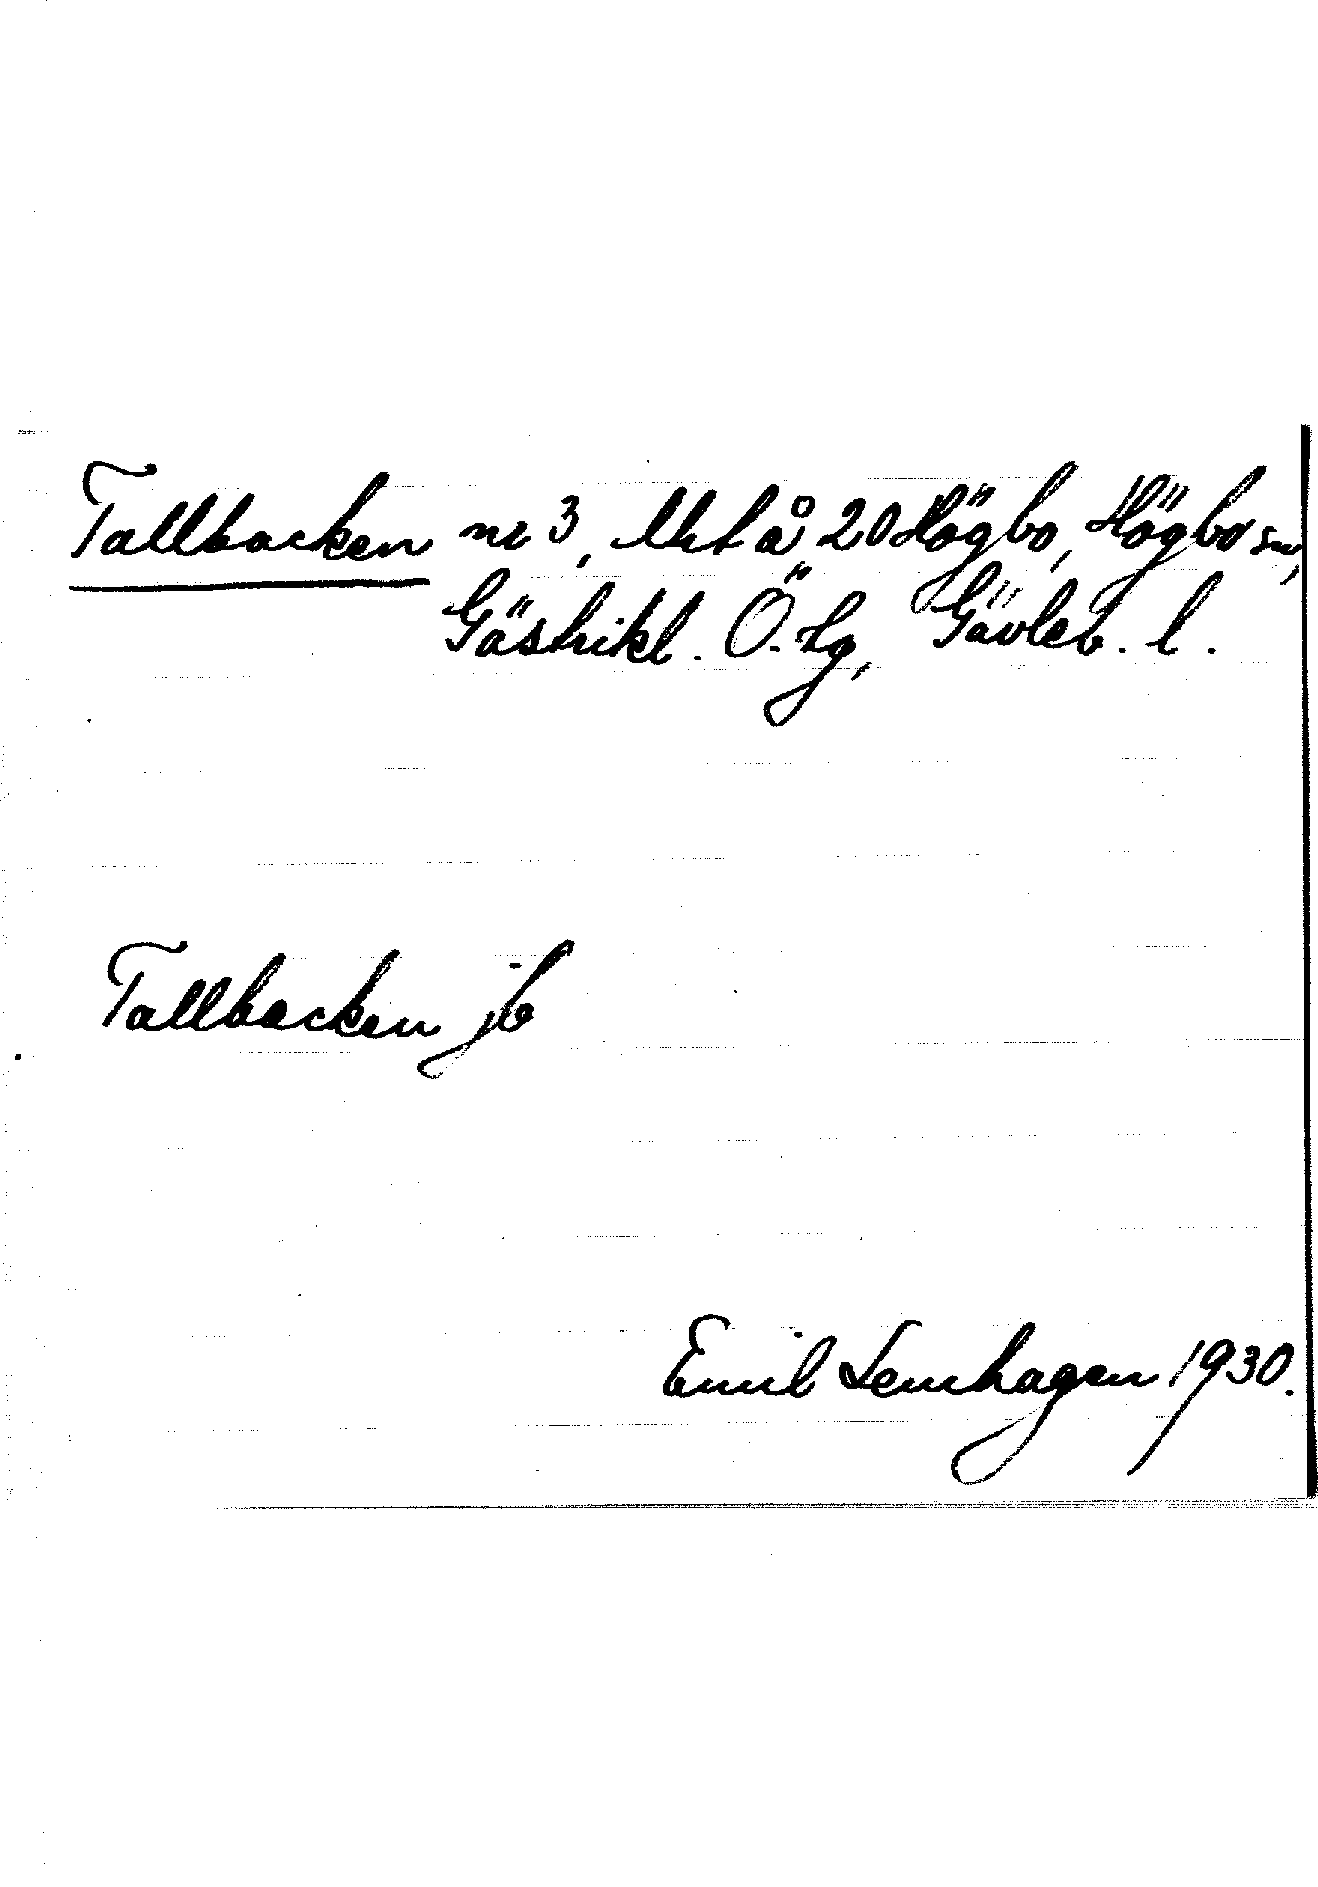 Tallbacken nr 3, Urf å 20 Högbo, Högbo sn,
Gästrikl. Ö. tg, Gävleb. l.
Tallbacken jb
Emil Lenhagen 1930.